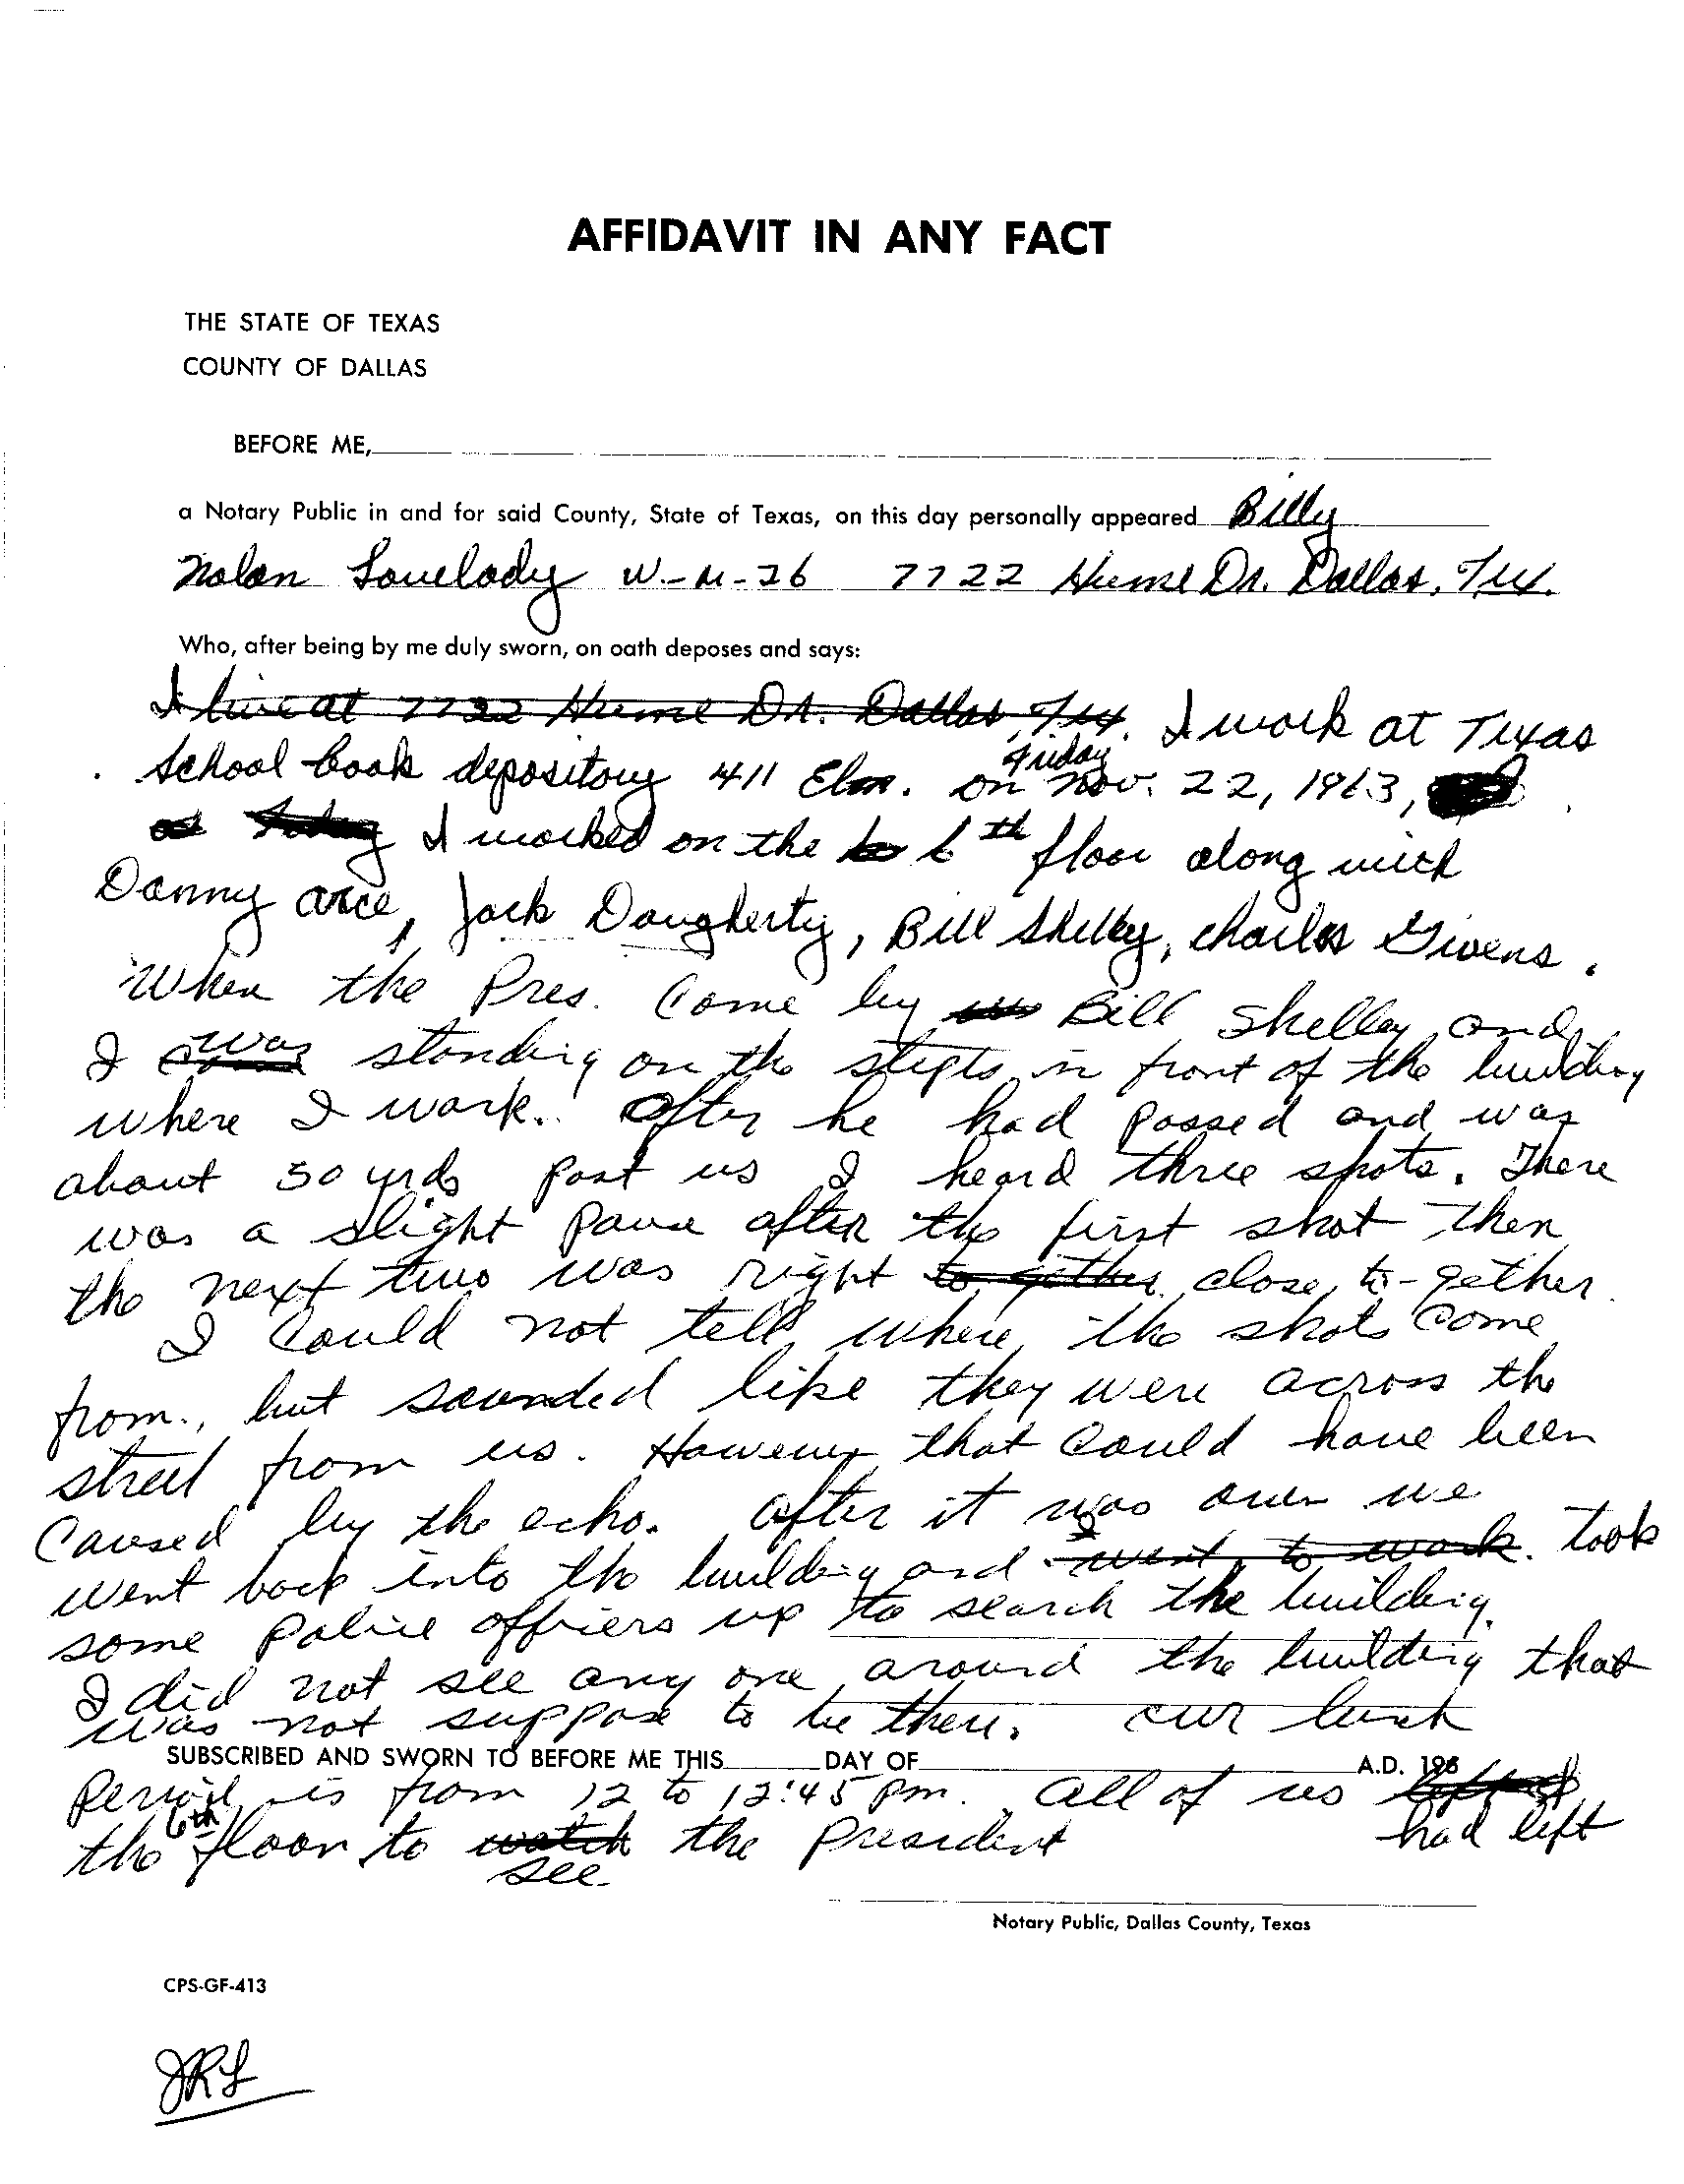 AFFIDAVIT IN ANY FACT
THE STATE OF TEXAS
COUNTY OF DALLAS
BEFORE ME,
a Notary Public in and for said County, State of Texas, on this day personally appeared Billy
Nolan Lovelady W-M-26 7722 Hume Dr. Dallas, Tex.
Who, after being by me duly sworn, on oath deposes and says:
I live at 7722 Hume Dr. Dallas, Tex. I work at Texas
School book depository 411 Elm. on Friday Nov. 22, 1963,
I worked on the 6th floor along with
Danny arce, Jack Dougherty, Bill Shelley, charles Givens.
When the Pres. Come by Bill Shelley and
I was standing on the stepts in front of the building
where I work. After he had passed and was
about 50 yrds past us I heard three shots. There
was a slight pause after the first shot then
the next two was right to gether close to-gether.
I Could not tell where the shots come
from., but sounded like they were across the
street from us. However that could have been
Caused by the echo. after it was over we
went back into the building and I went to work. took
some police officers up to search the building.
I did not see any one around the building that
was not suppose to be there. our lunch
SUBSCRIBED AND SWORN TO BEFORE ME THIS DAY OF A.D. 196
Period is from 12 to 12:45 pm. all of us had left
the 6th floor to watch see the President
Notary Public, Dallas County, Texas
CPS-GF-413
JRL